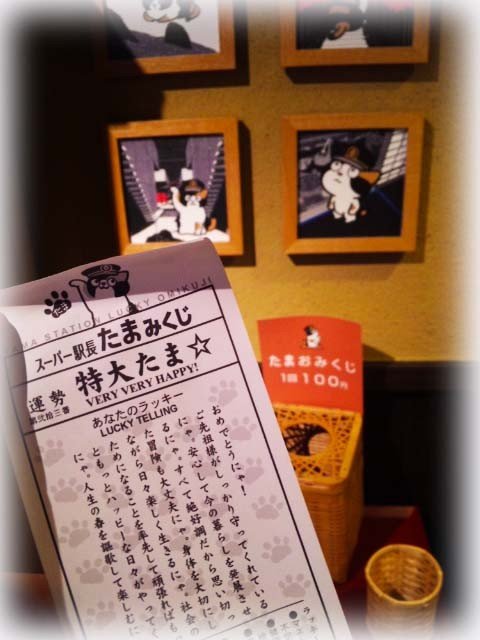 TAMA STATION LUCKY OMIKUJI
スーパー駅長
たまみくじ
運勢
第弐拾三番
特大たま☆
VERY VERY HAPPY!
あなたのラッキー
LUCKY TELLING
おめでとうにゃ!
ご先祖様がしっかり守ってくれている
にゃ。安心して今の暮らしを発展させ
るにゃ。すべて絶好調だから思い切っ
た冒険も大丈夫にゃ。身体を大切にし
ながら日々楽しく生きるにゃ。社会の
ためになることを率先して頑張れば
もっとハッピーな日々がやってく
にゃ。人生の春を謳歌して楽しむに
たまおみくじ
1回100円